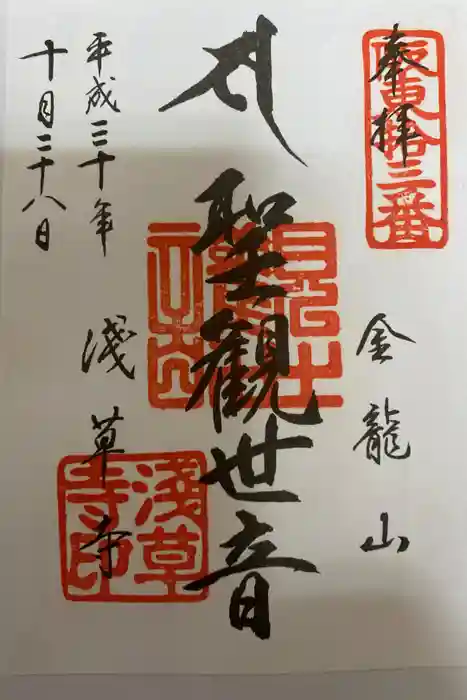 奉拝
坂東拾三番
金龍山
聖観世音
浅草寺
浅草寺印
平成三十年
十月二十八日